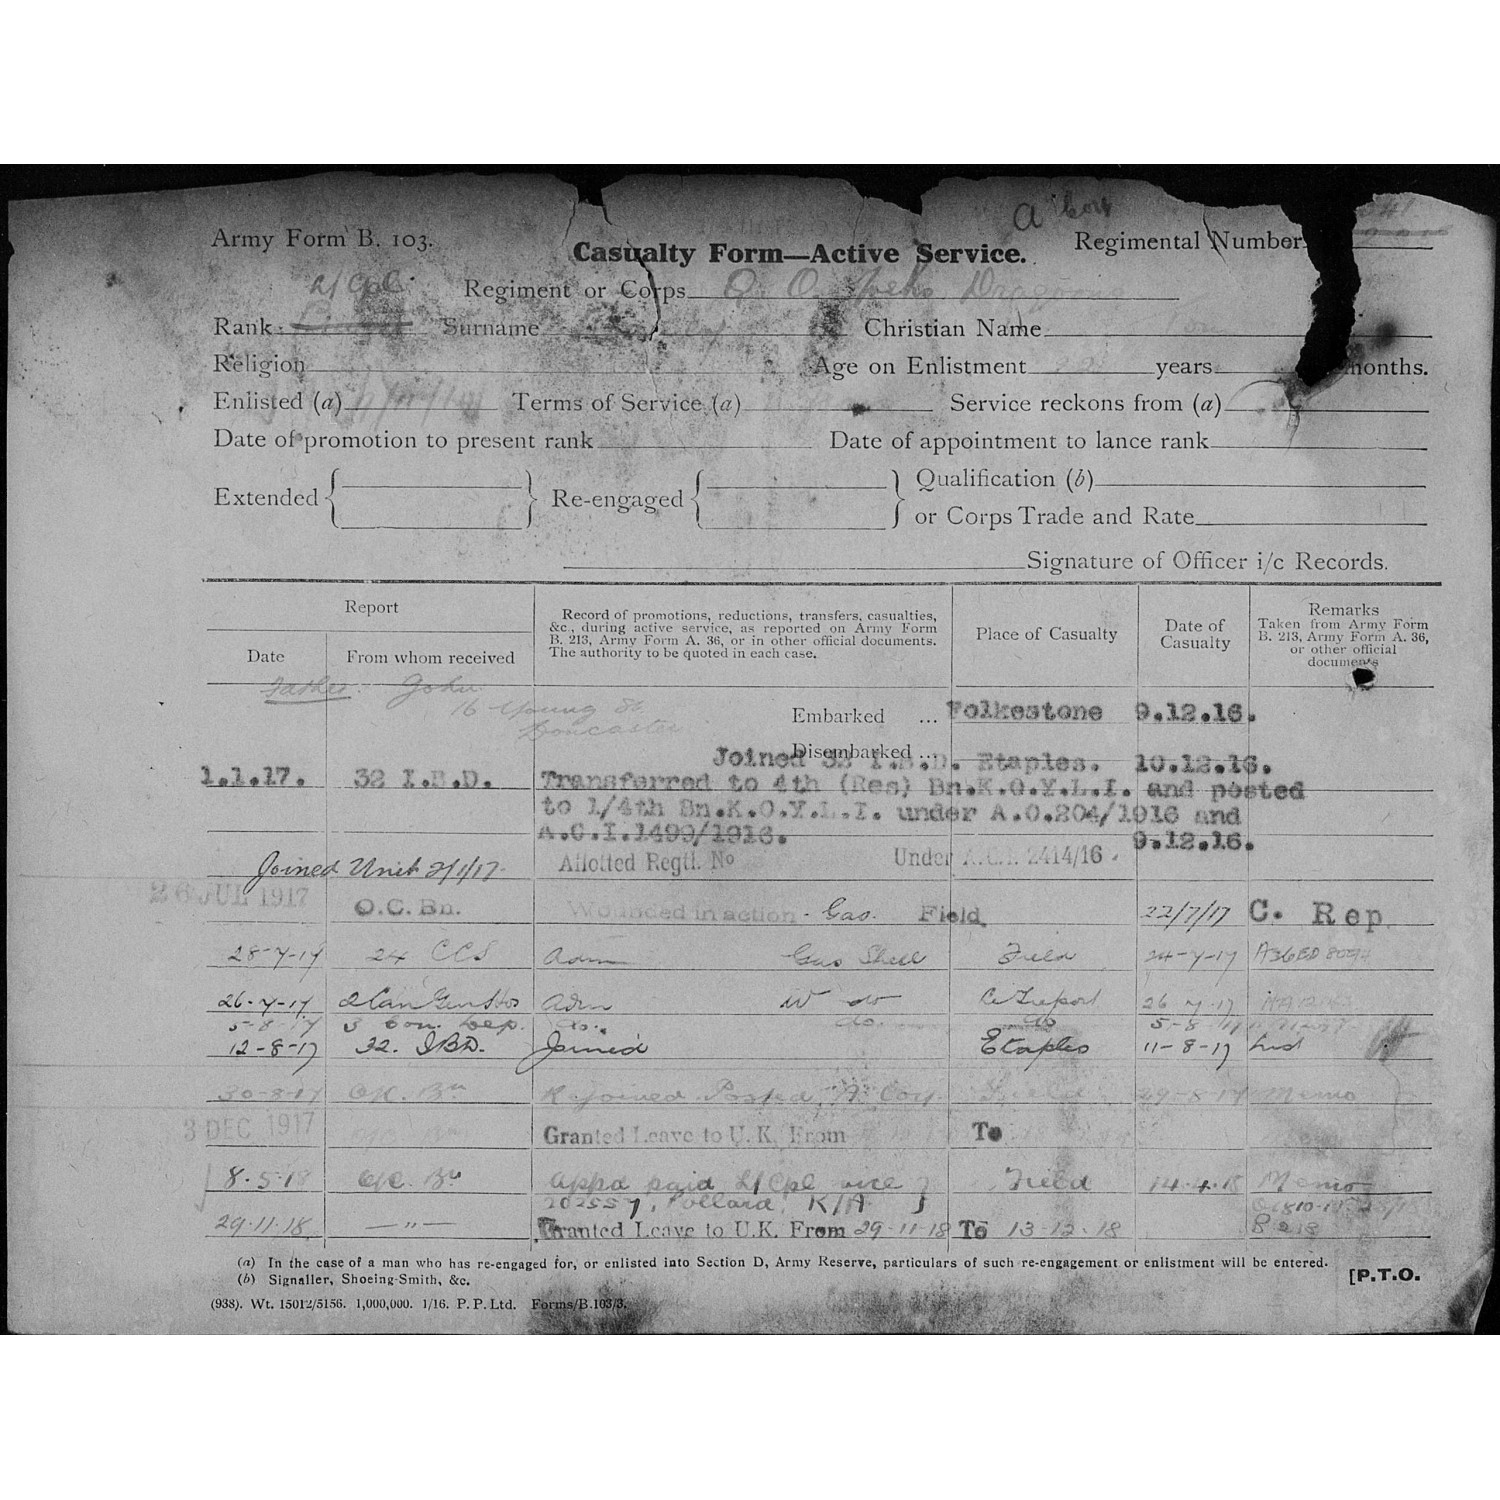 A Coy
Army Form B. 103.
Casualty Form—Active Service.
Regimental Number
L/Cpl
Regiment or Corps Q. O. Dragoons
Rank Surname Christian Name Tom
Religion Age on Enlistment years months.
Enlisted (a) Terms of Service (a) Service reckons from (a)
Date of promotion to present rank Date of appointment to lance rank
Extended Re-engaged Qualification (b)
or Corps Trade and Rate
Signature of Officer i/c Records.
Report
Date From whom received
Record of promotions, reductions, transfers, casualties, &c., during active service, as reported on Army Form B. 213, Army Form A. 36, or in other official documents. The authority to be quoted in each case.
Place of Casualty
Date of Casualty
Remarks
Taken from Army Form B. 213, Army Form A. 36, or other official documents
Father John
16 Young St
Doncaster
Embarked ... Folkestone 9.12.16.
Disembarked ...
Joined 32 I.B.D. Etaples. 10.12.16.
1.1.17. 32 I.B.D. Transferred to 4th (Res) Bn.K.O.Y.L.I. and posted
to 1/4th Bn.K.O.Y.L.I. under A.O.204/1916 and
A.C.I.1499/1916. 9.12.16.
Allotted Regtl. No Under A.C.I. 2414/16.
Joined Unit 2/1/17
26 JUL 1917 O.C. Bn. Wounded in action - Gas. Field. 22/7/17 C. Rep
28-7-17 24 CCS Adm Gas Shell Field 24-7-17 A36ED8094
26-7-17 2 Can Gen Hos Adm W do Le Treport 26-7-17
5-8-17 3 Con. Dep. do. do. do 5-8-17
12-8-17 32. IBD. Joined Etaples 11-8-17 List
30-8-17 O/C. Bn Rejoined Posted, A Coy. Field 29-8-17 Memo
3 DEC 1917 O/C Bn Granted Leave to U.K. From To
8-5-18 O/C. Bn Appd paid L/Cpl vice Field 14.4.18 Memo
202557, Pollard, K/A
29.11.18. —"— Granted Leave to U.K. From 29-11-18 To 13-12-18 B 213
(a) In the case of a man who has re-engaged for, or enlisted into Section D, Army Reserve, particulars of such re-engagement or enlistment will be entered.
(b) Signaller, Shoeing-Smith, &c.
[P.T.O.
(938). Wt. 15012/5156. 1,000,000. 1/16. P. P. Ltd. Forms/B.103/3.